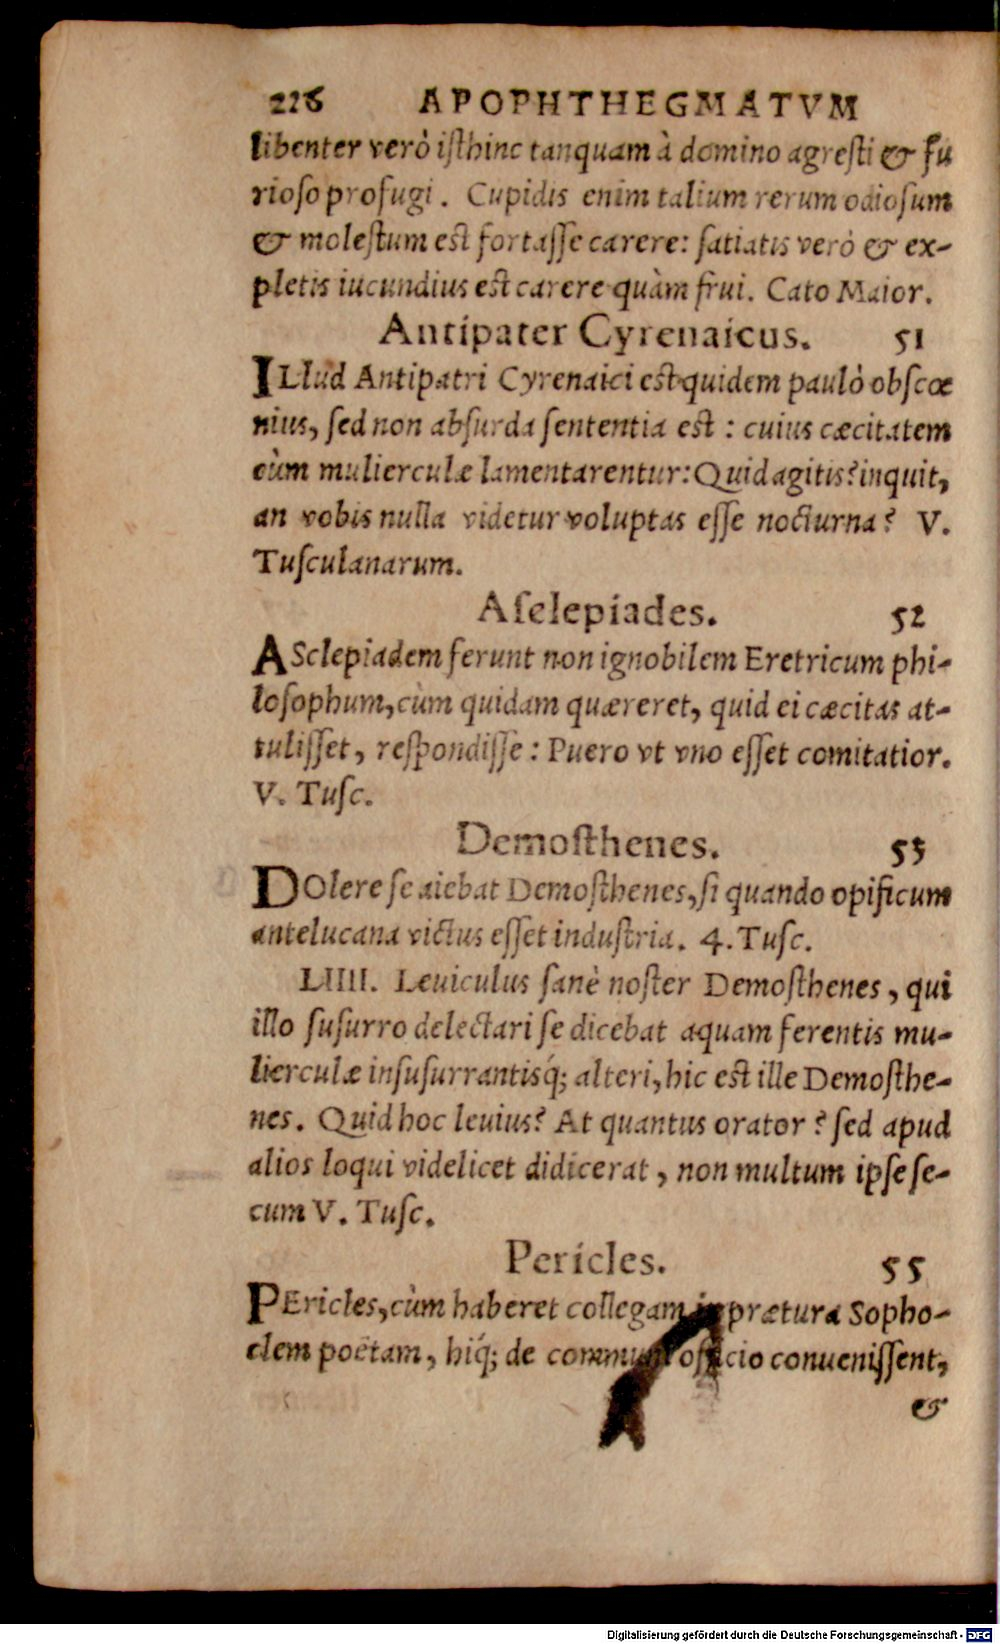 226 APOPHTHEGMATVM
libenter verò iſthinc tanquam à domino agreſti & fu
rioſo profugi. Cupidis enim talium rerum odioſum
& moleſtum eſt fortaſſe carere: ſatiatis verò & ex-
pletis iucundius eſt carere quàm frui. Cato Maior.
Antipater Cyrenaicus. 51
ILlud Antipatri Cyrenaici eſt quidem paulò obſcœ
nius, ſed non abſurda ſententia eſt : cuius cæcitatem
cùm mulierculæ lamentarentur: Quid agitis? inquit,
an vobis nulla videtur voluptas eſſe nocturna? V.
Tuſculanarum.
Aſclepiades. 52
ASclepiadem ferunt non ignobilem Eretricum phi-
loſophum, cùm quidam quæreret, quid ei cæcitas at-
tuliſſet, reſpondiſſe : Puero vt vno eſſet comitatior.
V. Tuſc.
Demoſthenes. 53
DOlere ſe aiebat Demoſthenes, ſi quando opificum
antelucana victus eſſet induſtria. 4. Tuſc.
LIIII. Leuiculus ſanè noſter Demoſthenes, qui
illo ſuſurro delectari ſe dicebat aquam ferentis mu-
lierculæ inſuſurrantisq́; alteri, hic eſt ille Demoſthe-
nes. Quid hoc leuius? At quantus orator? ſed apud
alios loqui videlicet didicerat, non multum ipſe ſe-
cum V. Tuſc.
Pericles. 55
PEricles, cùm haberet collegam in prætura Sopho-
clem poëtam, hiq́; de communi officio conueniſſent,
&
Digitalisierung gefördert durch die Deutsche Forschungsgemeinschaft - DFG